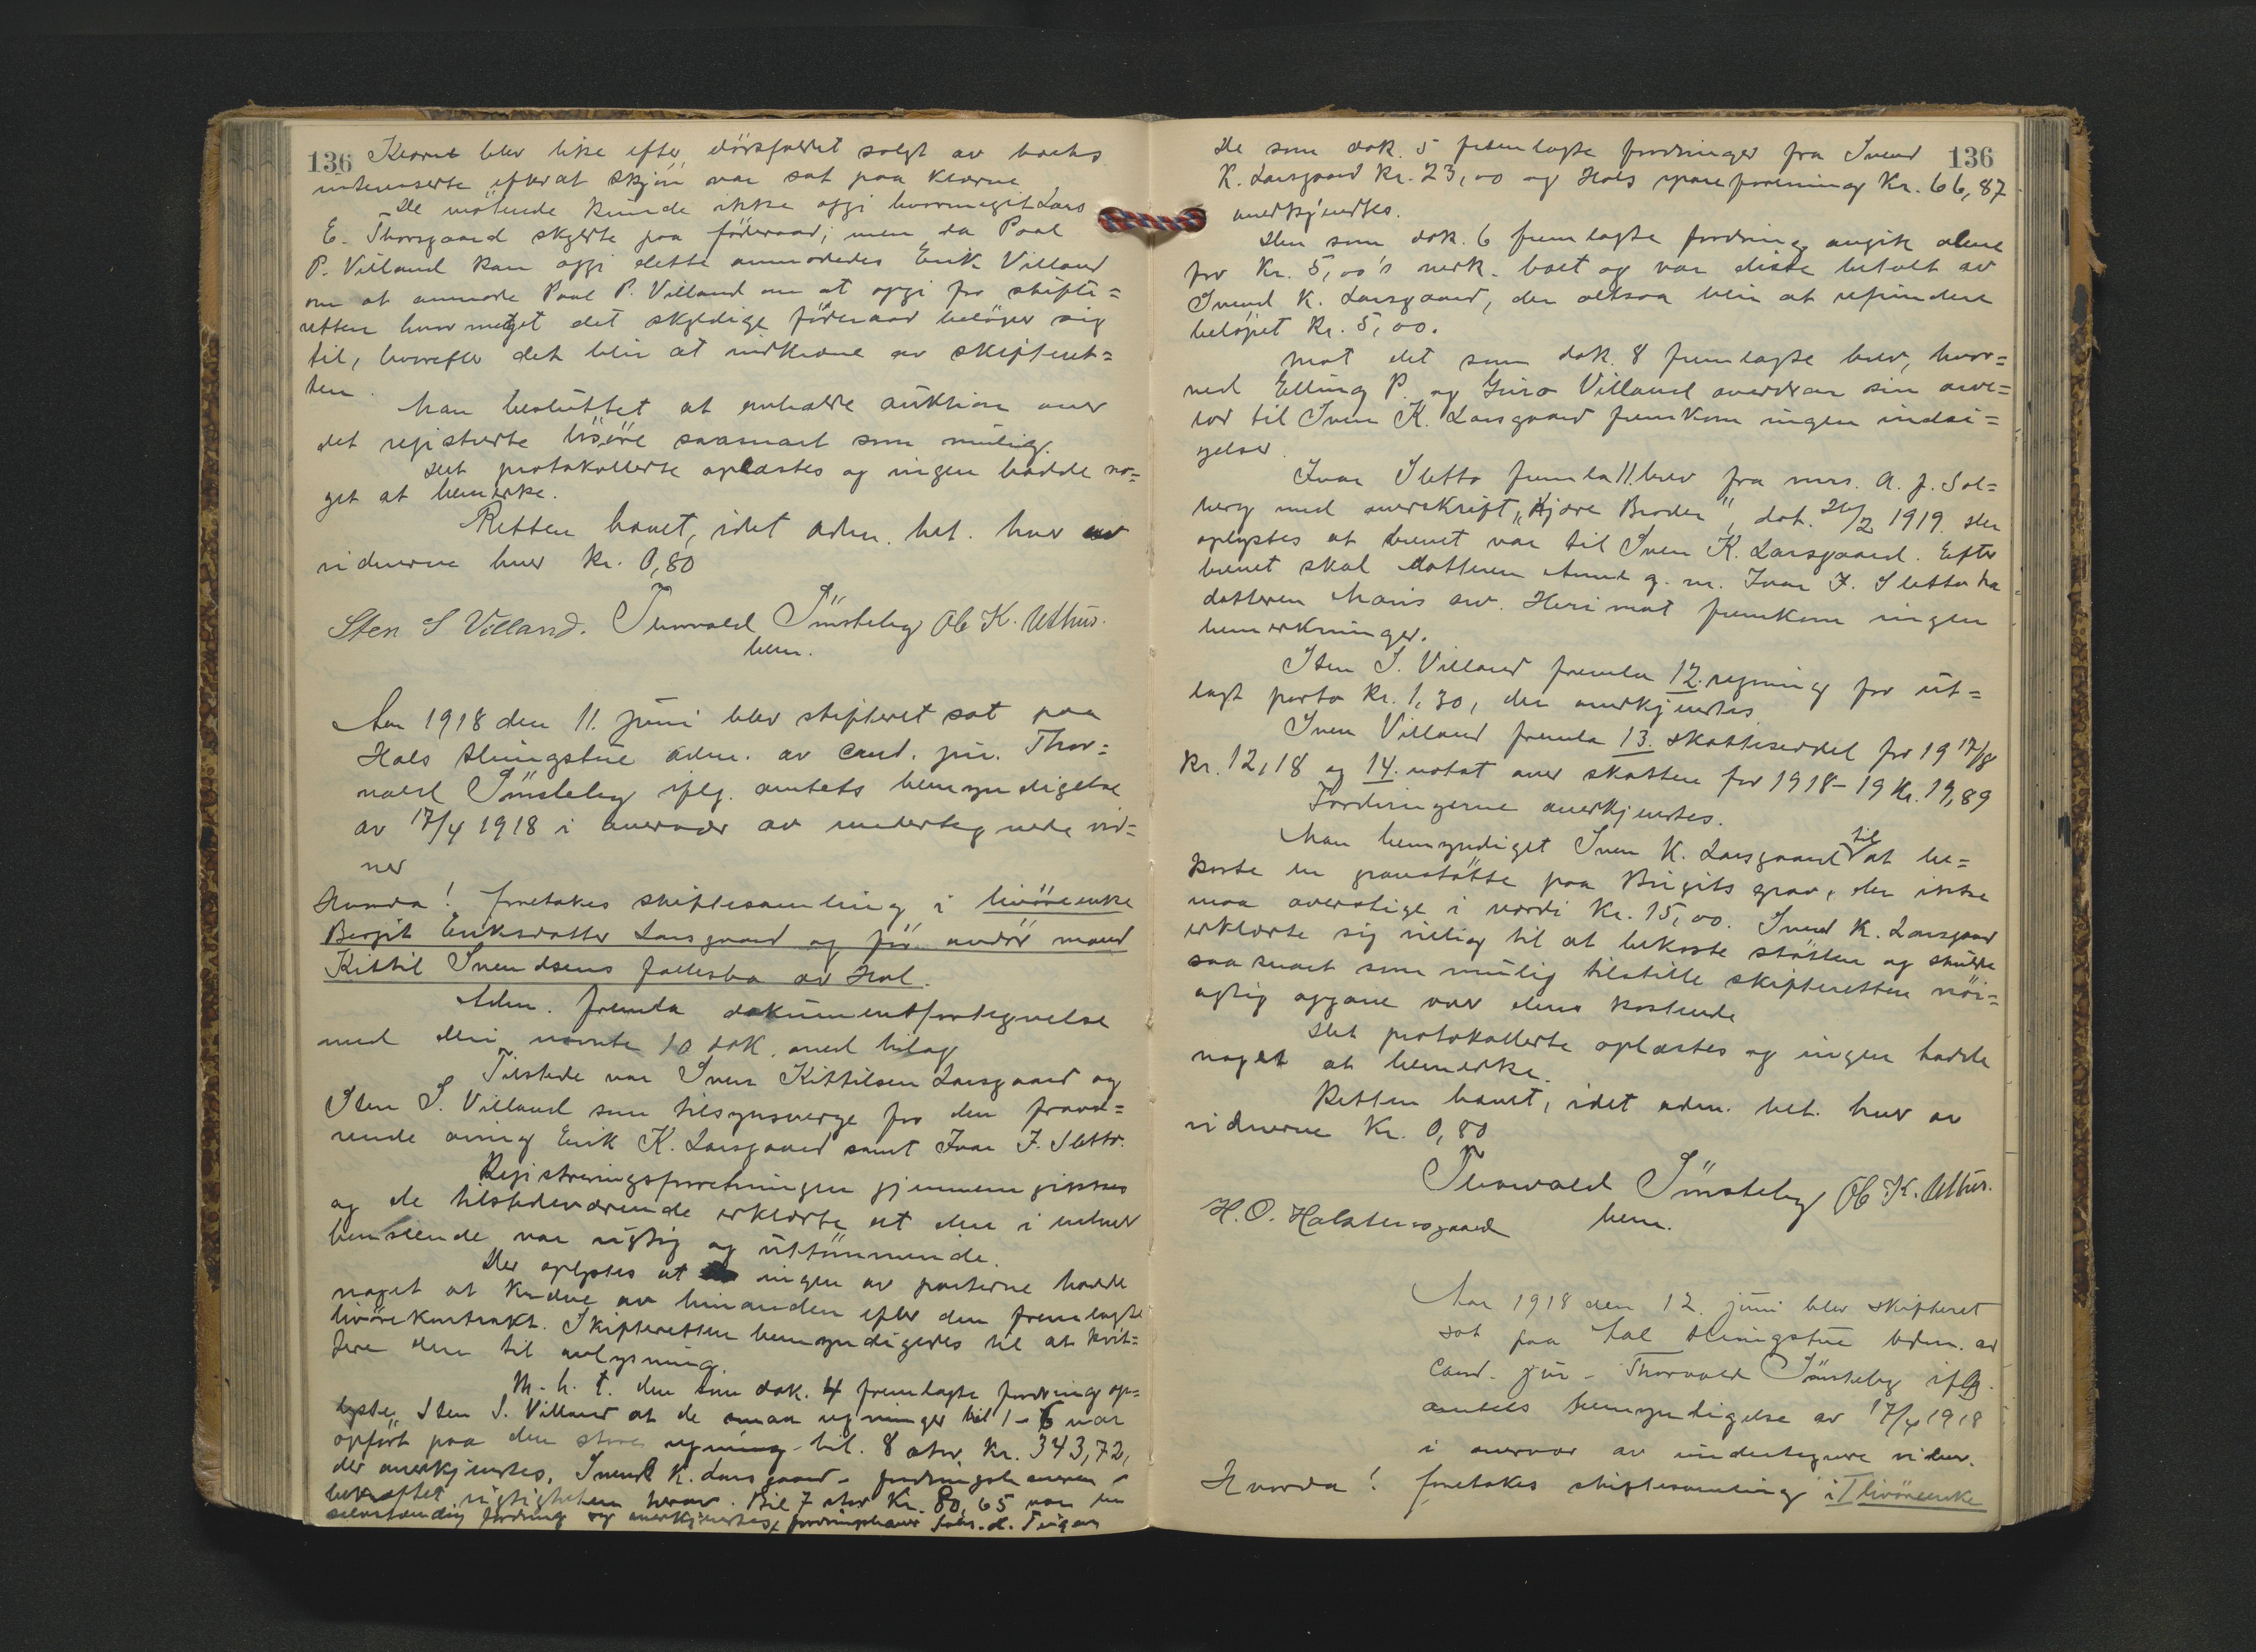 136
Klærne blev like efter dødsfaldet solgt av boets
interesserte efterat skjøn var sat paa klærne
De møtende kunde ikke opgi hvormeget Lars
E. Thorsgaard skyldte paa föderaad; men da Paal
P. Villand kan opgi dette anmodedes Erik Villand
om at anmode Paal P. Villand om at opgi for skifte=
retten hvor meget det skyldige föderaad belöper sig
til, hvorefter det blir at indkræve av skifteret=
ten.
Man besluttet at avholde auktion over
det registrerte lösöre saasnart som mulig.
Det protokollerte oplæstes og ingen hadde no=
get at bemerke.
Retten hævet, idet adm. bet. hver av
vidnerne hver kr. 0,80
Sten S Villand. Thorvald Sünsteby Ob K. Uthus.
bem.
Aar 1918 den 11. juni blev skifteret sat paa
Hols thingstue adm. av cand. jur. Thor=
vald Sünsteby iflg. amtets bemyndigelse
av 17/4 1918 i overvær av undertegnede vid=
ner
Hvorda! foretokes skiftesamling i livöreenke
Birgit Eriksdatter Larsgaard og för avdöde mand
Kittil Svendsens fællesbo av Hol.
Adm. fremla dokumentfortegnelse
med deri nævnte 10 dok. med bilag
Tilstede var Sven Kittilsen Larsgaard og
Sten S. Villand som tilsynsverge for den fravæ=
rende arving Erik K. Larsgaard samt Ivar I. Sletto.
Registreringsforretningen gjennemgikkes
og de tilstedeværende erklærte at den i enhver
henseende var rigtig og uttömmende.
Der oplystes at ingen av parterne hadde
noget at kræve av hinanden efter den fremlagte
livörekontrakt. Skifteretten bemyndigedes til at kvit=
tere den til avlysning.
M. h. t. den som dok. 4 fremlagte fordring op=
lyste Sten S. Villand at de smaa regninger bil 1-6 var
opfört paa den store regning bil. 8 stor kr. 343,72,
der anerkjendtes. Svend K. Larsgaard - fordringshaveren -
bekræftet rigtigheten herav. Bil 7 stor Kr. 80,65 var en
selvstændig fordring og anerkjendtes, fordringshaver
136
De som dok. 5 fremlagte fordringer fra Svend
K. Larsgaard kr. 23,00 og Hols spareforening Kr. 66,87
anerkjendtes.
Den som dok. 6 fremlagte fordring angik alene
for Kr. 5,00's verk. boet og var disse betalt av
Svend K. Larsgaard, der altsaa blir at refundere
belöpet kr. 5,00.
Mot det som dok. 8 fremlagte brev, hvor=
ved Elling P. og Guro Villand overdrar sin arve=
lod til Sven K. Larsgaard fremkom ingen indsi=
gelser.
Ivar Sletto fremla 11. brev fra mrs. A. J. Sol=
berg med overskrift "Kjære Broder", dat. 26/2 1919. Der
oplystes at brevet var til Sven K. Larsgaard. Efter
brevet skal datteren Anne g. m. Ivar I. Sletto ha
datteren Maris arv. Herimot fremkom ingen
bemerkninger.
Sten S. Villand fremla 12. regning for ut=
lagt porto Kr. 1,30, der anerkjendtes
Sven Villand fremla 13. skatteseddel for 1917/18
kr. 12,18 og 14. notat over skatten for 1918-19 Kr. 19,89
Fordringerne anerkjendtes.
Man bemyndiget Sven K. Larsgaard til at be=
koste en gravstötte paa Birgits grav, der ikke
maa overstige i værdi kr. 15,00. Svend K. Larsgaard
erklærte sig villig til at bekoste stötten og skulde
saa snart som mulig tilstille skifteretten nöi=
agtig opgave over dens kostende
Det protokollerte oplæstes og ingen hadde
noget at bemerke.
Retten hævet, idet adm. bet. hver av
vidnerne Kr. 0,80
Thorvald Sünsteby Ob K. Uthus.
H. O. Halstensgaard bem.
Aar 1918 den 12. juni blev skifteret
sat paa Hol thingstue adm. av
cand. jur. Thorvald Sünsteby iflg.
amtets bemyndigelse av 17/4 1918
i overvær av undertegnede vidner.
Hvorda! foretokes skiftesamling i livöreenke